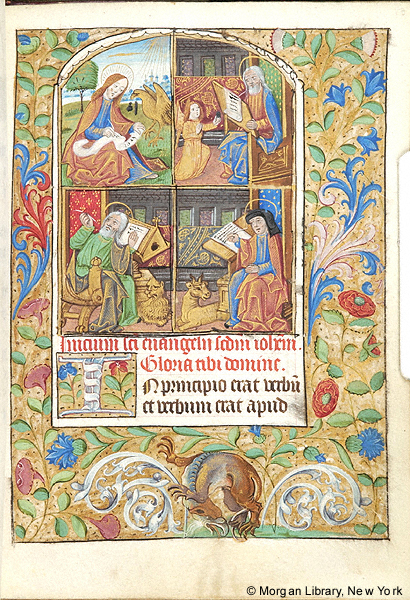 Inicium sci euangelii scdm iohem.
Gloria tibi domine.
IN principio erat verbū
et verbum erat apud
© Morgan Library, New York